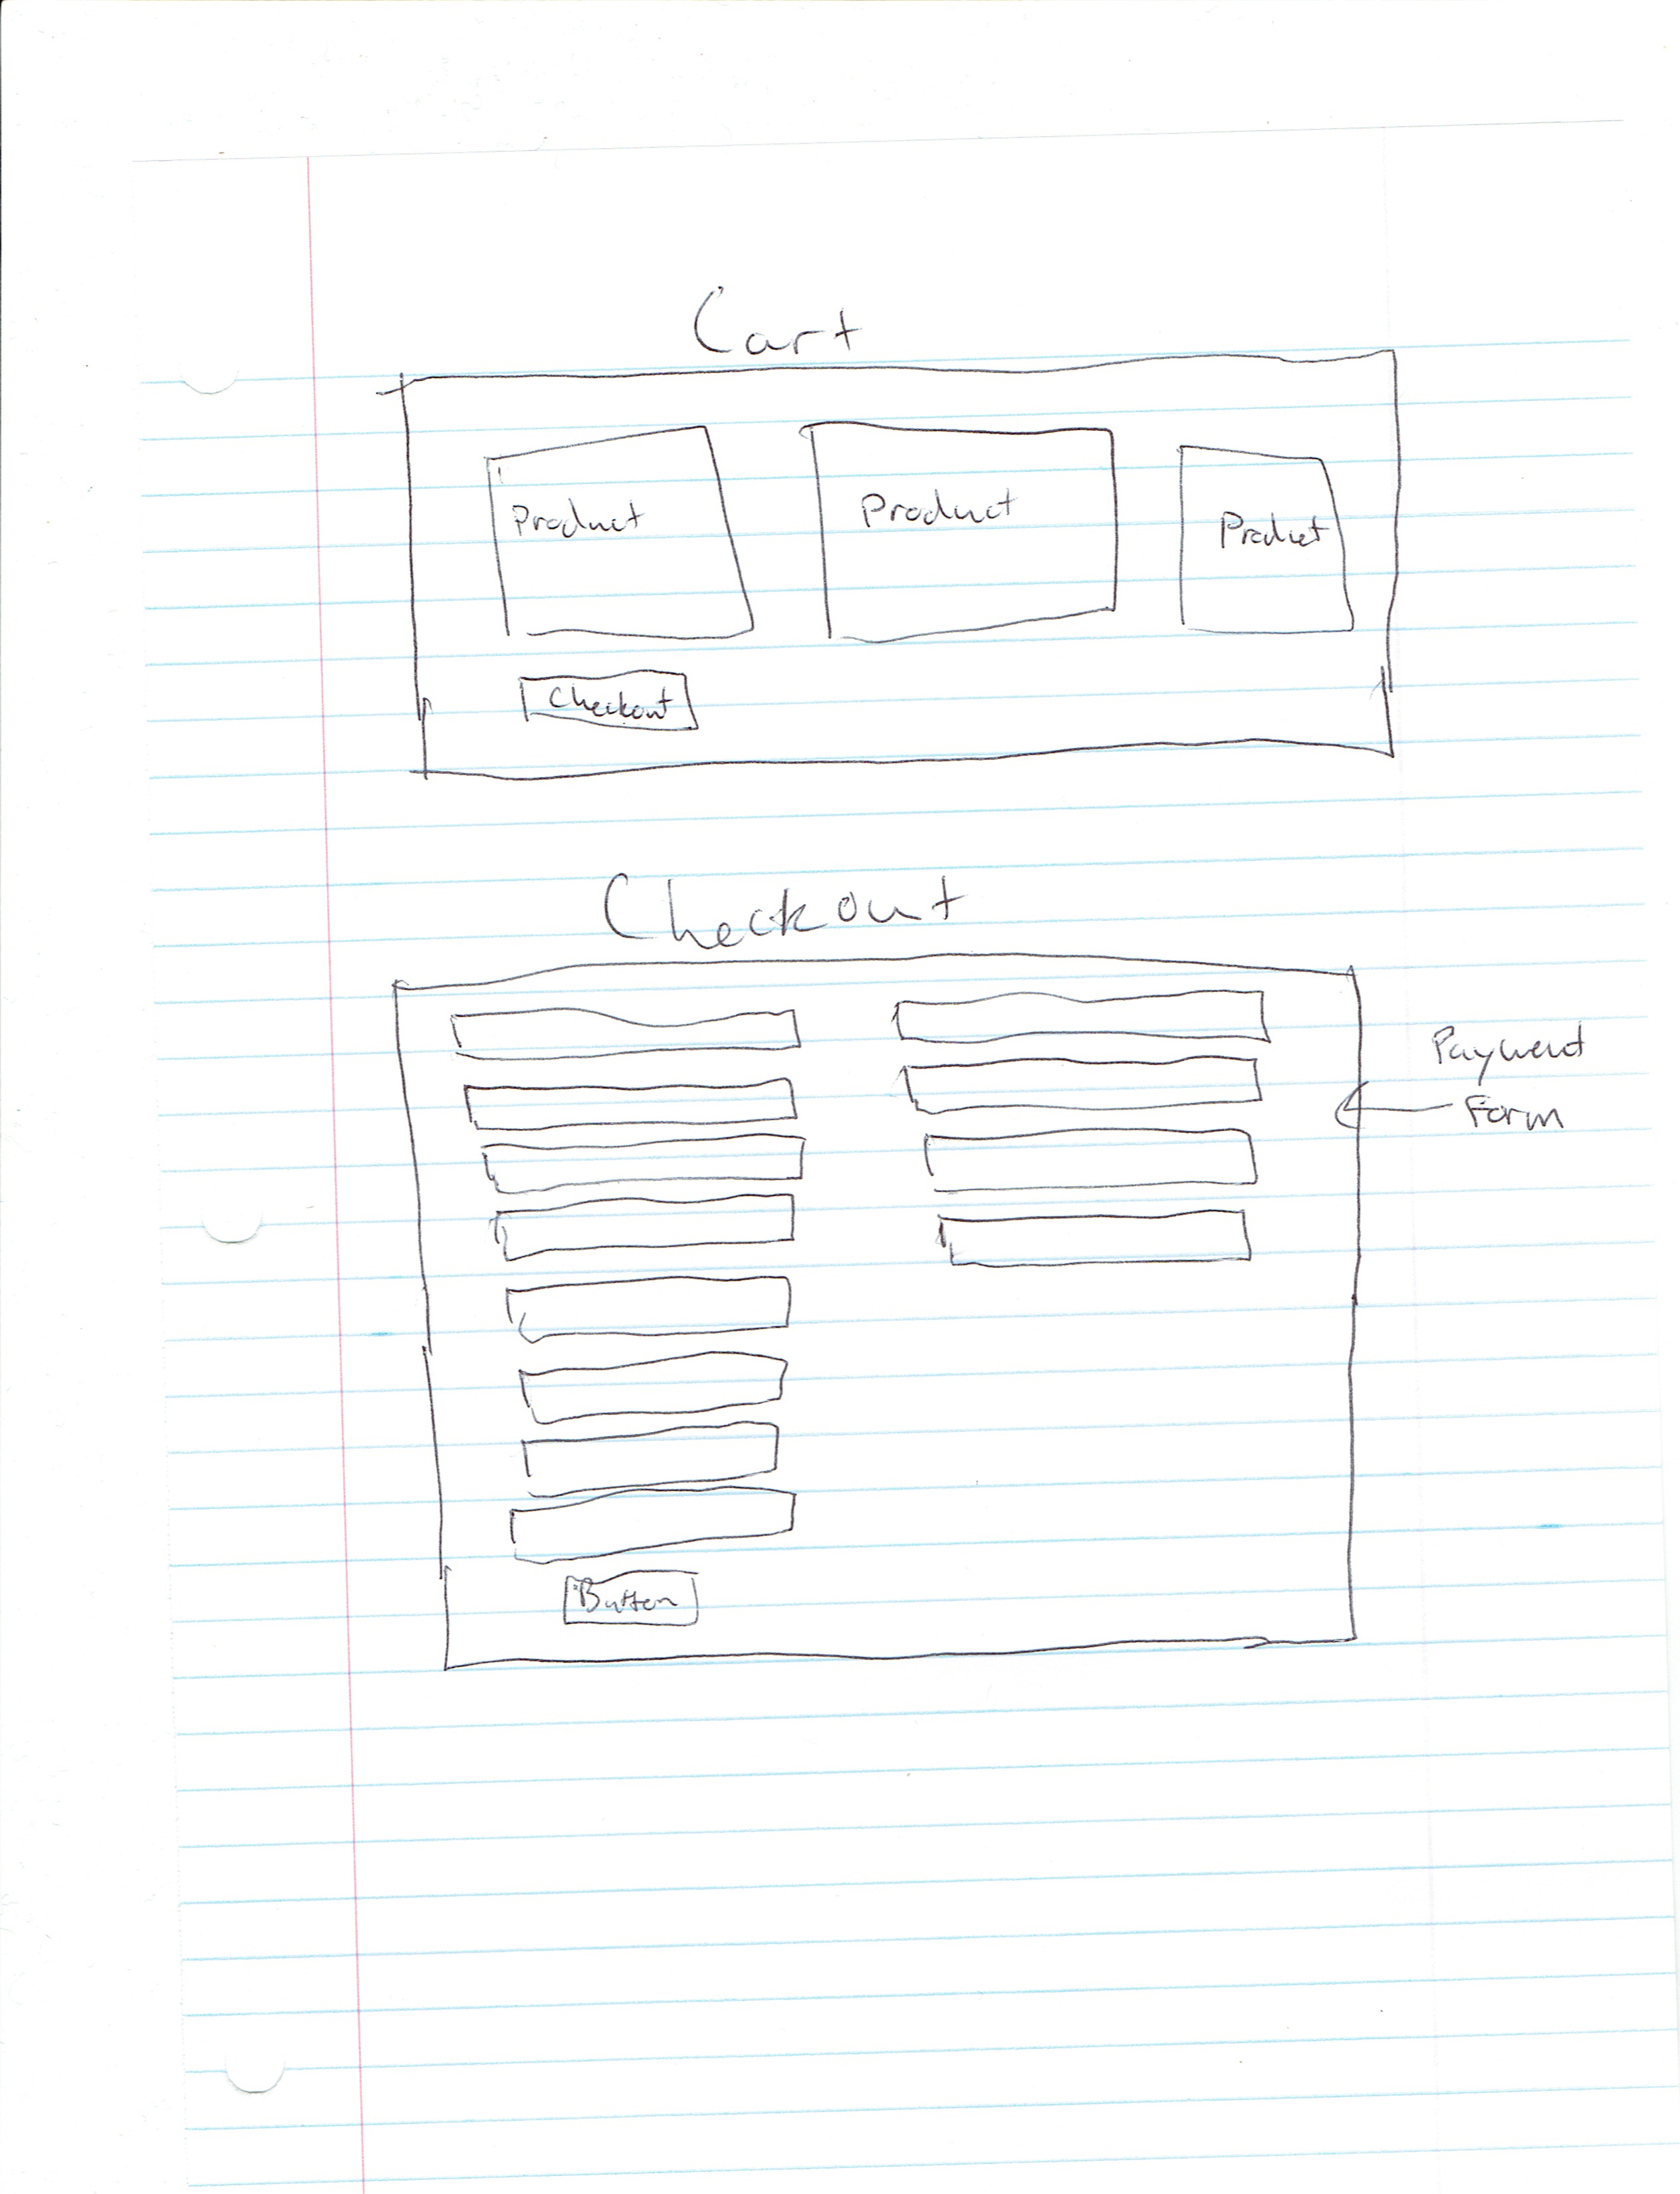 Cart
Product Product Product
Checkout
Checkout
Payment
Form
Button